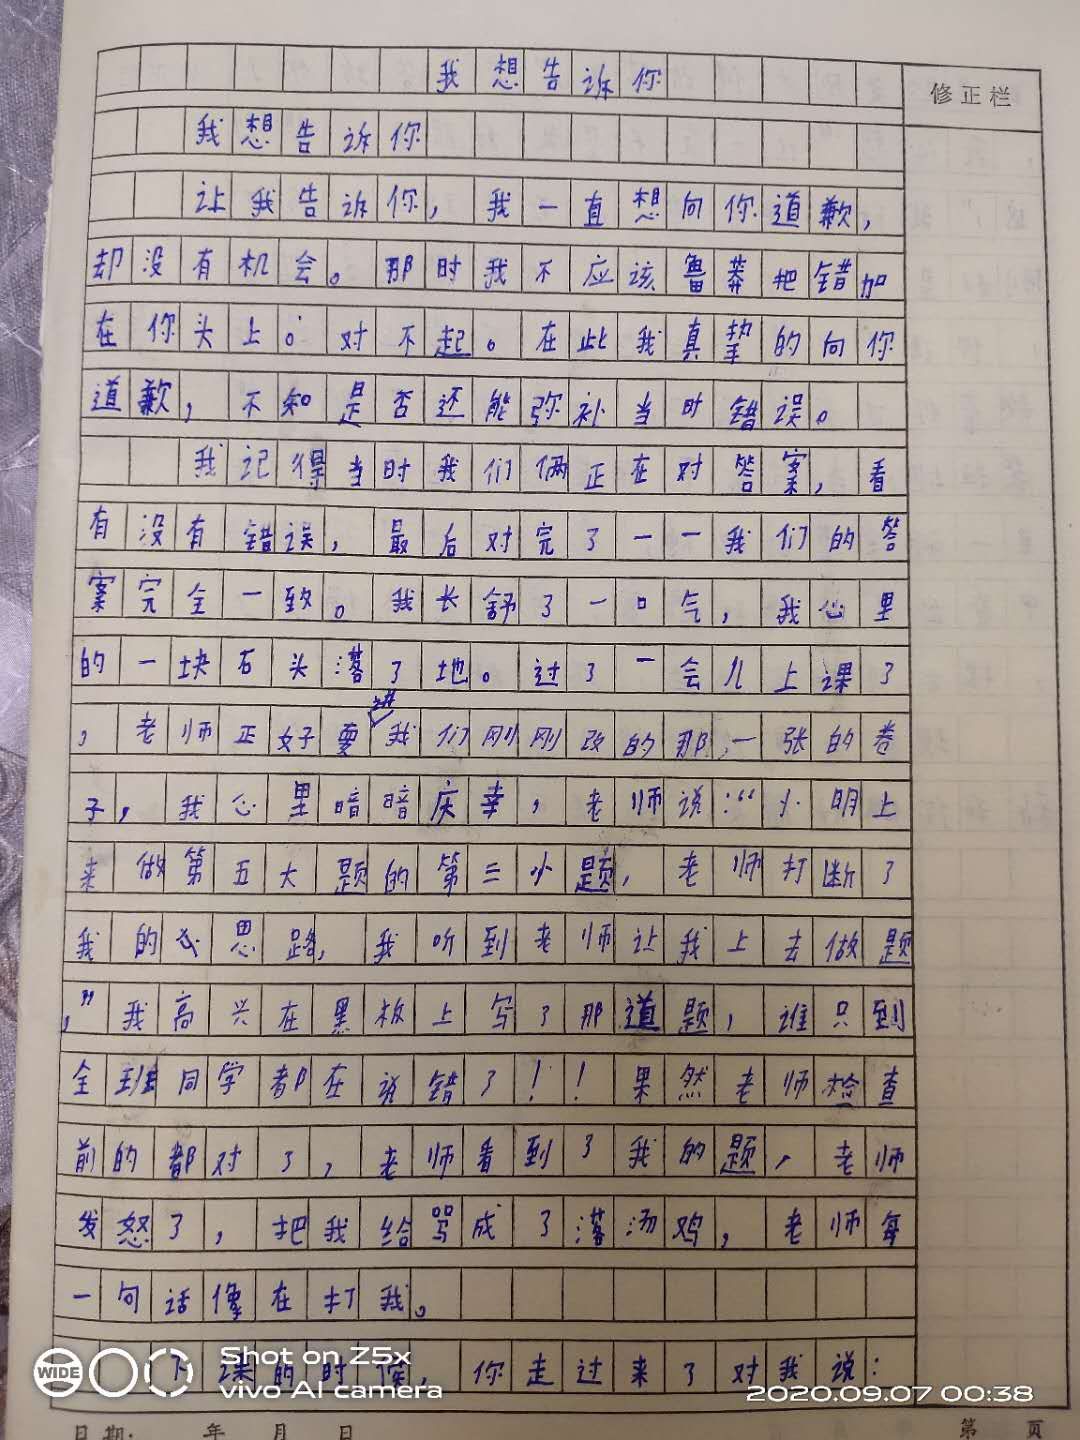 我想告诉你
修正栏
我想告诉你
让我告诉你，我一直想向你道歉，
却没有机会。那时我不应该鲁莽把错加
在你头上。对不起。在此我真挚的向你
道歉，不知是否还能弥补当时错误。
我记得当时我们俩正在对答案，看
有没有错误，最后对完了一一我们的答
案完全一致。我长舒了一口气，我心里
的一块石头落了地。过了一会儿上课了
，老师正好要讲我们刚刚改的那一张的卷
子，我心里暗暗庆幸，老师说：“小明上
来做第五大题的第三小题，老师打断了
我的思路，我听到老师让我上去做题
，”我高兴在黑板上写了那道题，谁只到
全班同学都在说错了！！果然老师检查
前的都对了，老师看到了我的题，老师
发怒了，把我给骂成了落汤鸡，老师每
一句话像在打我。
下课的时候，你走过来了对我说：
WIDE
Shot on Z5x
vivo AI camera
2020.09.07 00:38
日期： 年 月 日
第 页